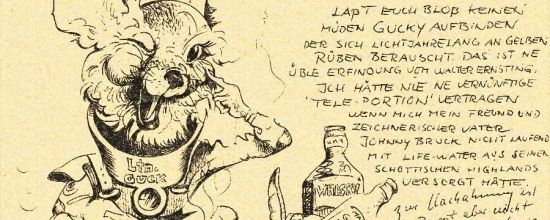 LAßT EUCH BLOß KEINEN
MÜDEN GUCKY AUFBINDEN
DER SICH LICHTJAHRELANG AN GELBEN
RÜBEN BERAUSCHT. DAS IST NE
ÜBLE ERFINDUNG VOM WALTER ERNSTING.
ICH HÄTTE NIE NE VERNÜNFTIGE
'TELE-PORTION' VERTRAGEN
WENN MICH MEIN FREUND UND
ZEICHNERISCHER VATER
JOHNNY BRUCK NICHT LAUFEND
MIT LIFE-WATER AUS SEINEN
SCHOTTISCHEN HIGHLANDS
VERSORGT HÄTTE.
zur Nachahmung ist
aber nicht
Ltn.
GUCK
WHISKY